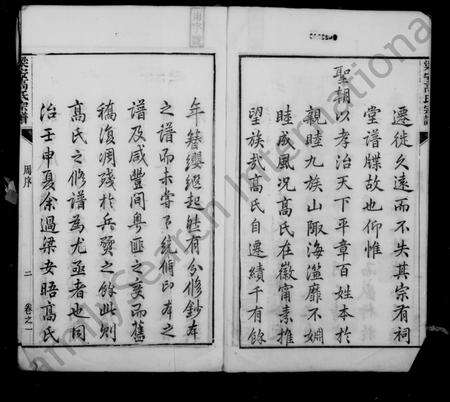 遷徙久遠而不失其宗有祠
堂譜牒故也仰惟
聖朝以孝治天下平章百姓本於
親睦九族山陬海澨靡不嫺
睦成風況高氏在徽甯素推
望族哉高氏自遷績千有餘
年簪纓繼起然有分修鈔本
之譜而未嘗有統修印本之
譜及咸豐間粵匪之變而舊
稿復凋殘於兵燹之餘此則
高氏之修譜為尤亟者也同
治壬申夏余過梁安晤高氏
梁安高氏宗譜
周序
二
卷之一
FamilySearch International